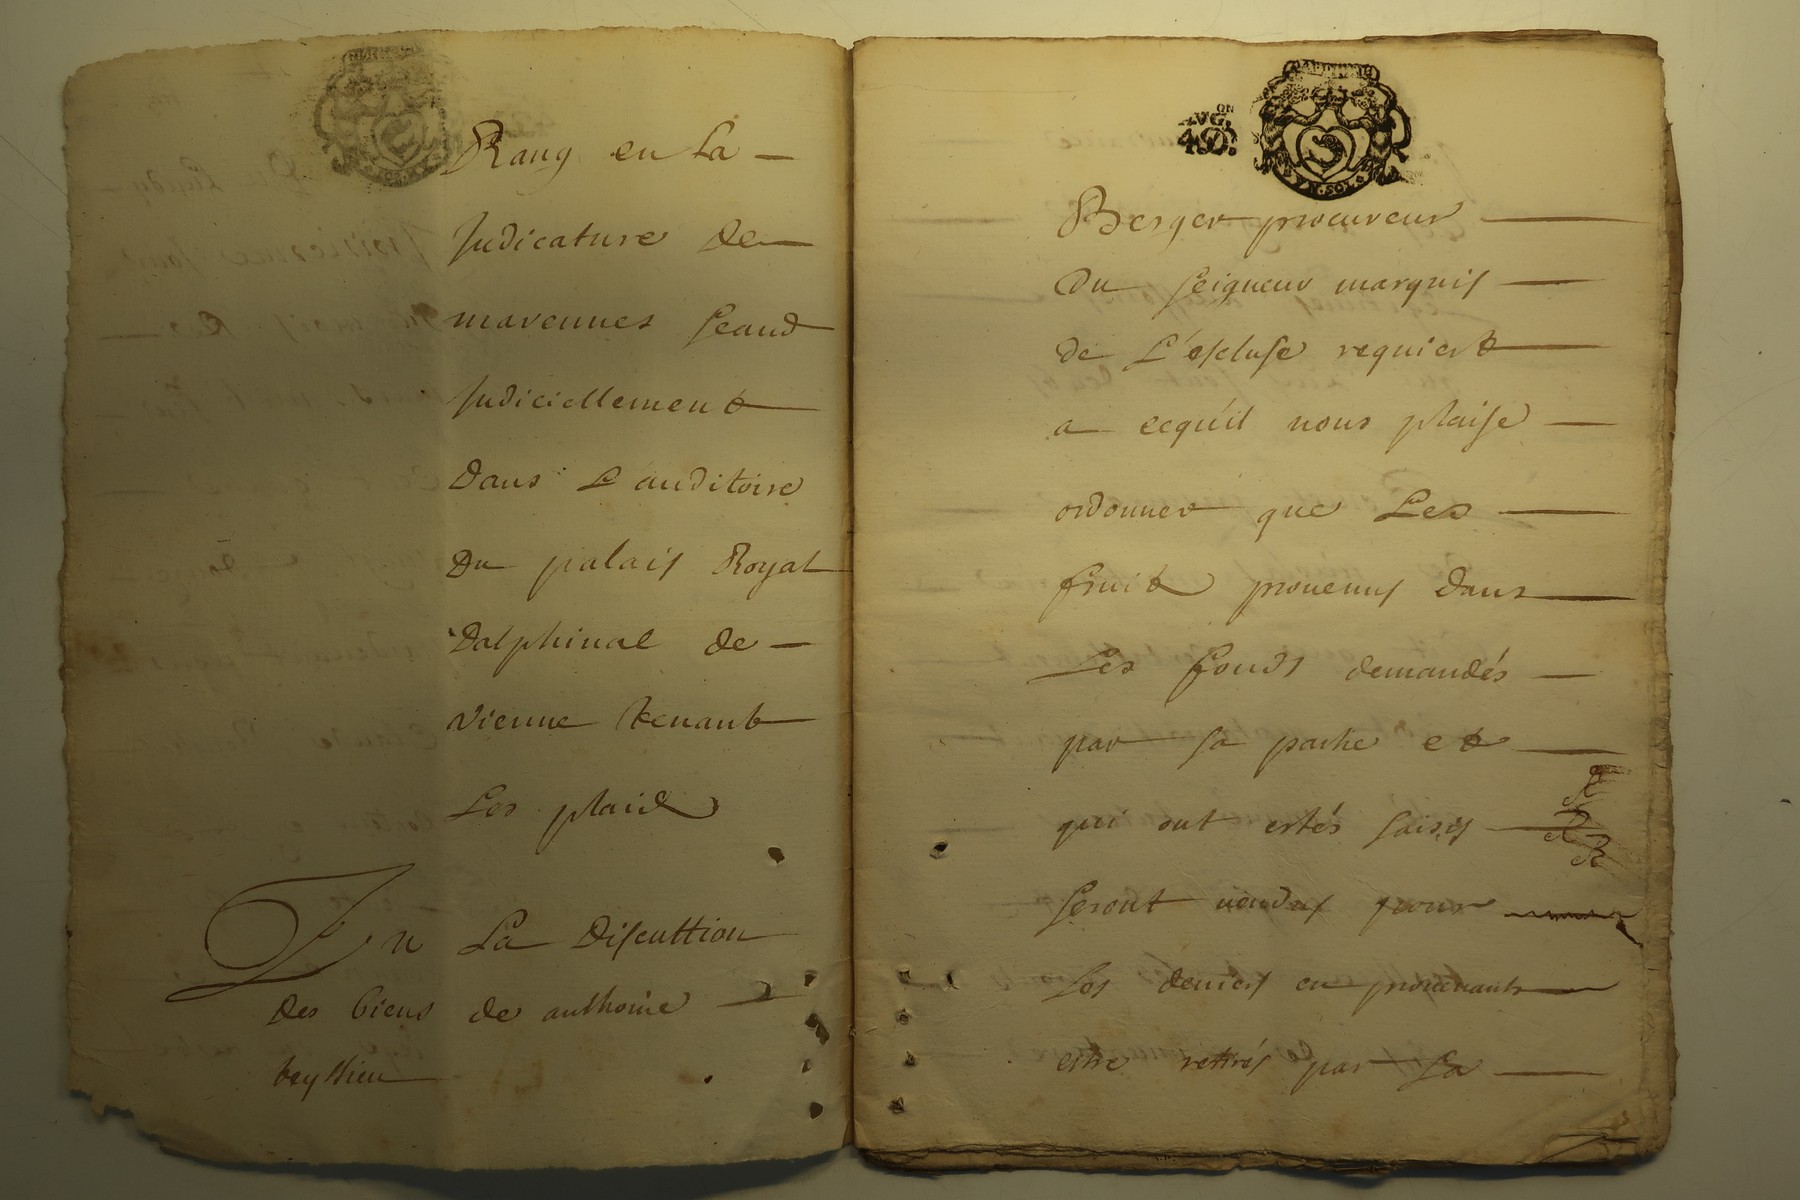 Rang en La
Judicature de
marennes seand
Judiciellement
Dans L'auditoire
Du palais Royal
Dalphinal de
vienne tenant
Les plaid
En La Discuttion
des biens de anthoine
beyssieu
AUG.ON
4D.
UN.SOL
Berger procureur
Du seigneur marquis
de L'escluse requiert
a ecqu'il nous plaise
ordonner que Les
fruit provenus dans
Les fonds demandés
par sa partie et
qui ont estés saisis
seront vendus pour
Les deniers en prouenants
estre rettirés par La